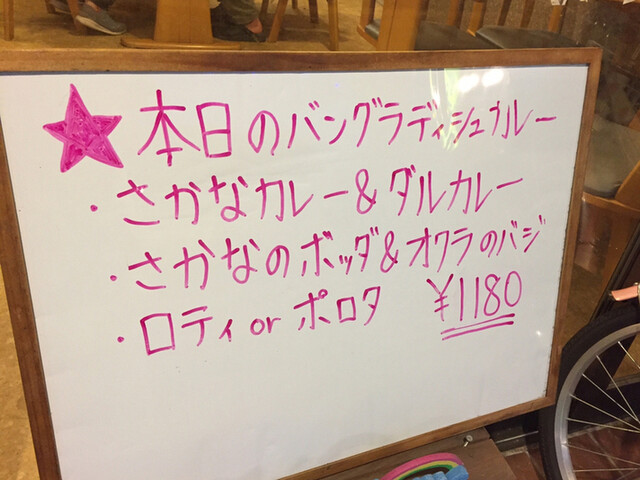 ★本日のバングラディシュカレー
・さかなカレー&ダルカレー
・さかなのボッダ&オクラのバジ
・ロティorポロタ ¥1180